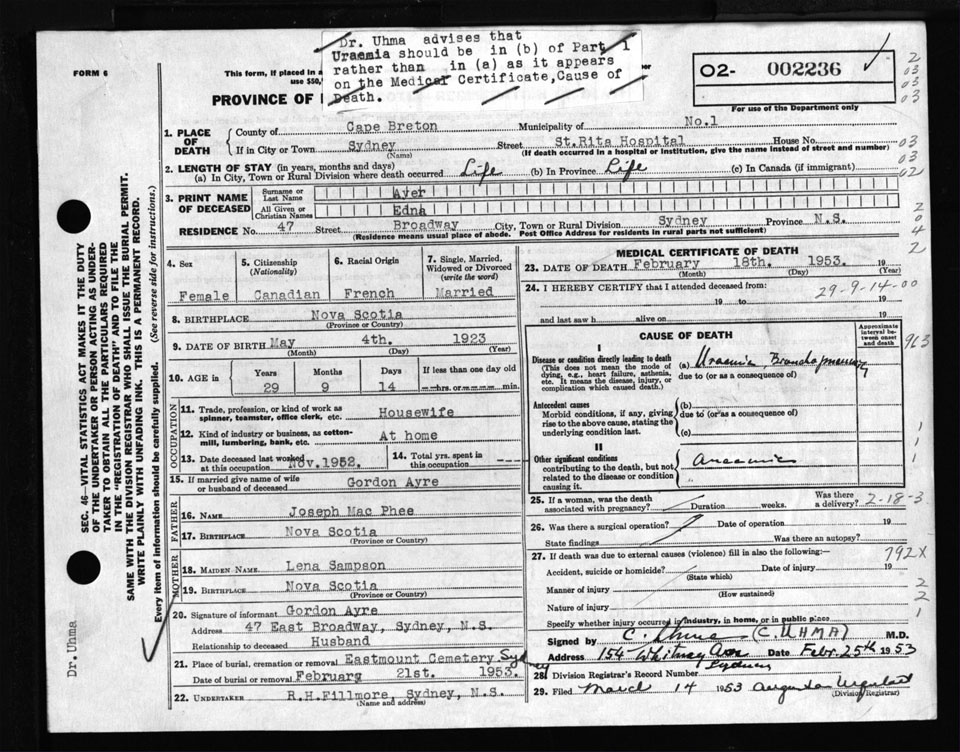 Dr. Uhma advises that
Uraemia should be in (b) of Part 1
rather than in (a) as it appears
on the Medical Certificate, Cause of
Death.
FORM 6
This form, if placed in a
use $50,
PROVINCE OF
O2- 002236
For use of the Department only
1. PLACE OF DEATH
County of Cape Breton Municipality of No.1
If in City or Town Sydney Street St.Rita Hospital House No.
(Name) (If death occurred in a hospital or institution, give the name instead of street and number)
2. LENGTH OF STAY (in years, months and days)
(a) In City, Town or Rural Division where death occurred Life (b) In Province Life (c) In Canada (if immigrant)
3. PRINT NAME OF DECEASED
Surname or Last Name Ayer
All Given or Christian Names Edna
RESIDENCE No. 47 Street Broadway City, Town or Rural Division Sydney Province N.S.
(Residence means usual place of abode. Post Office Address for residents in rural parts not sufficient)
4. Sex Female
5. Citizenship (Nationality) Canadian
6. Racial Origin French
7. Single, Married, Widowed or Divorced (write the word) Married
8. BIRTHPLACE Nova Scotia
(Province or Country)
9. DATE OF BIRTH May 4th. 1923
(Month) (Day) (Year)
10. AGE in Years Months Days If less than one day old
29 9 14 hrs. or min.
OCCUPATION
11. Trade, profession, or kind of work as spinner, teamster, office clerk, etc. Housewife
12. Kind of industry or business, as cotton-mill, lumbering, bank, etc. At home
13. Date deceased last worked at this occupation Nov.1952.
14. Total yrs. spent in this occupation
15. If married give name of wife or husband of deceased Gordon Ayre
FATHER
16. NAME Joseph Mac Phee
17. BIRTHPLACE Nova Scotia
(Province or Country)
MOTHER
18. MAIDEN NAME Lena Sampson
19. BIRTHPLACE Nova Scotia
(Province or Country)
20. Signature of informant Gordon Ayre
Address 47 East Broadway, Sydney, N.S.
Relationship to deceased Husband
21. Place of burial, cremation or removal Eastmount Cemetery Sydney
Date of burial or removal February 21st. 1953.
22. UNDERTAKER R.H.Fillmore, Sydney, N.S.
(Name and address)
MEDICAL CERTIFICATE OF DEATH
23. DATE OF DEATH February 18th. 1953.
(Month) (Day) (Year)
24. I HEREBY CERTIFY that I attended deceased from:
29-9-14-00
19 to 19
and last saw h alive on 19
CAUSE OF DEATH
Approximate interval between onset and death
I
Disease or condition directly leading to death
(This does not mean the mode of dying, e.g., heart failure, asthenia, etc. It means the disease, injury, or complication which caused death.)
(a) Uraemia,
due to (or as a consequence of)
Antecedent causes
Morbid conditions, if any, giving rise to the above cause, stating the underlying condition last.
(b)
due to (or as a consequence of)
(c)
II
Other significant conditions
contributing to the death, but not related to the disease or condition causing it.
Anaemia
25. If a woman, was the death associated with pregnancy? Duration weeks. Was there a delivery? 2-18-3
26. Was there a surgical operation? Date of operation 19
State findings Was there an autopsy?
792X
27. If death was due to external causes (violence) fill in also the following:—
Accident, suicide or homicide? Date of injury 19
(State which)
Manner of injury
(How sustained)
Nature of injury
Specify whether injury occurred in industry, in home, or in public place
Signed by C. Uhma (C. UHMA) M.D.
Address 154 Whitney Ave Sydney Date Febr. 25th 1953
28. Division Registrar's Record Number
29. Filed March 14 1953
(Division Registrar)
SEC. 46—VITAL STATISTICS ACT MAKES IT THE DUTY
OF THE UNDERTAKER OR PERSON ACTING AS UNDER-
TAKER TO OBTAIN ALL THE PARTICULARS REQUIRED
IN THE "REGISTRATION OF DEATH" AND TO FILE THE
SAME WITH THE DIVISION REGISTRAR WHO SHALL ISSUE THE BURIAL PERMIT.
WRITE PLAINLY WITH UNFADING INK. THIS IS A PERMANENT RECORD.
Every item of information should be carefully supplied. (See reverse side for instructions.)
Dr. Uhma